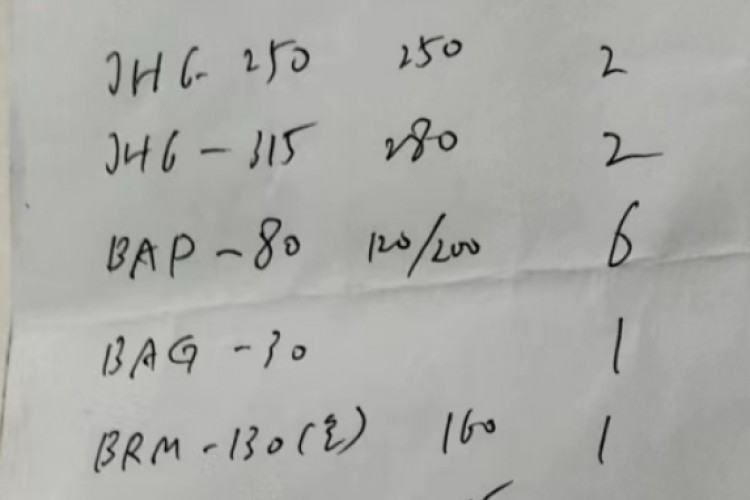 JHG-250 250 2
JHG-315 280 2
BAP-80 120/200 6
BAG-30 1
BRM-130 160 1